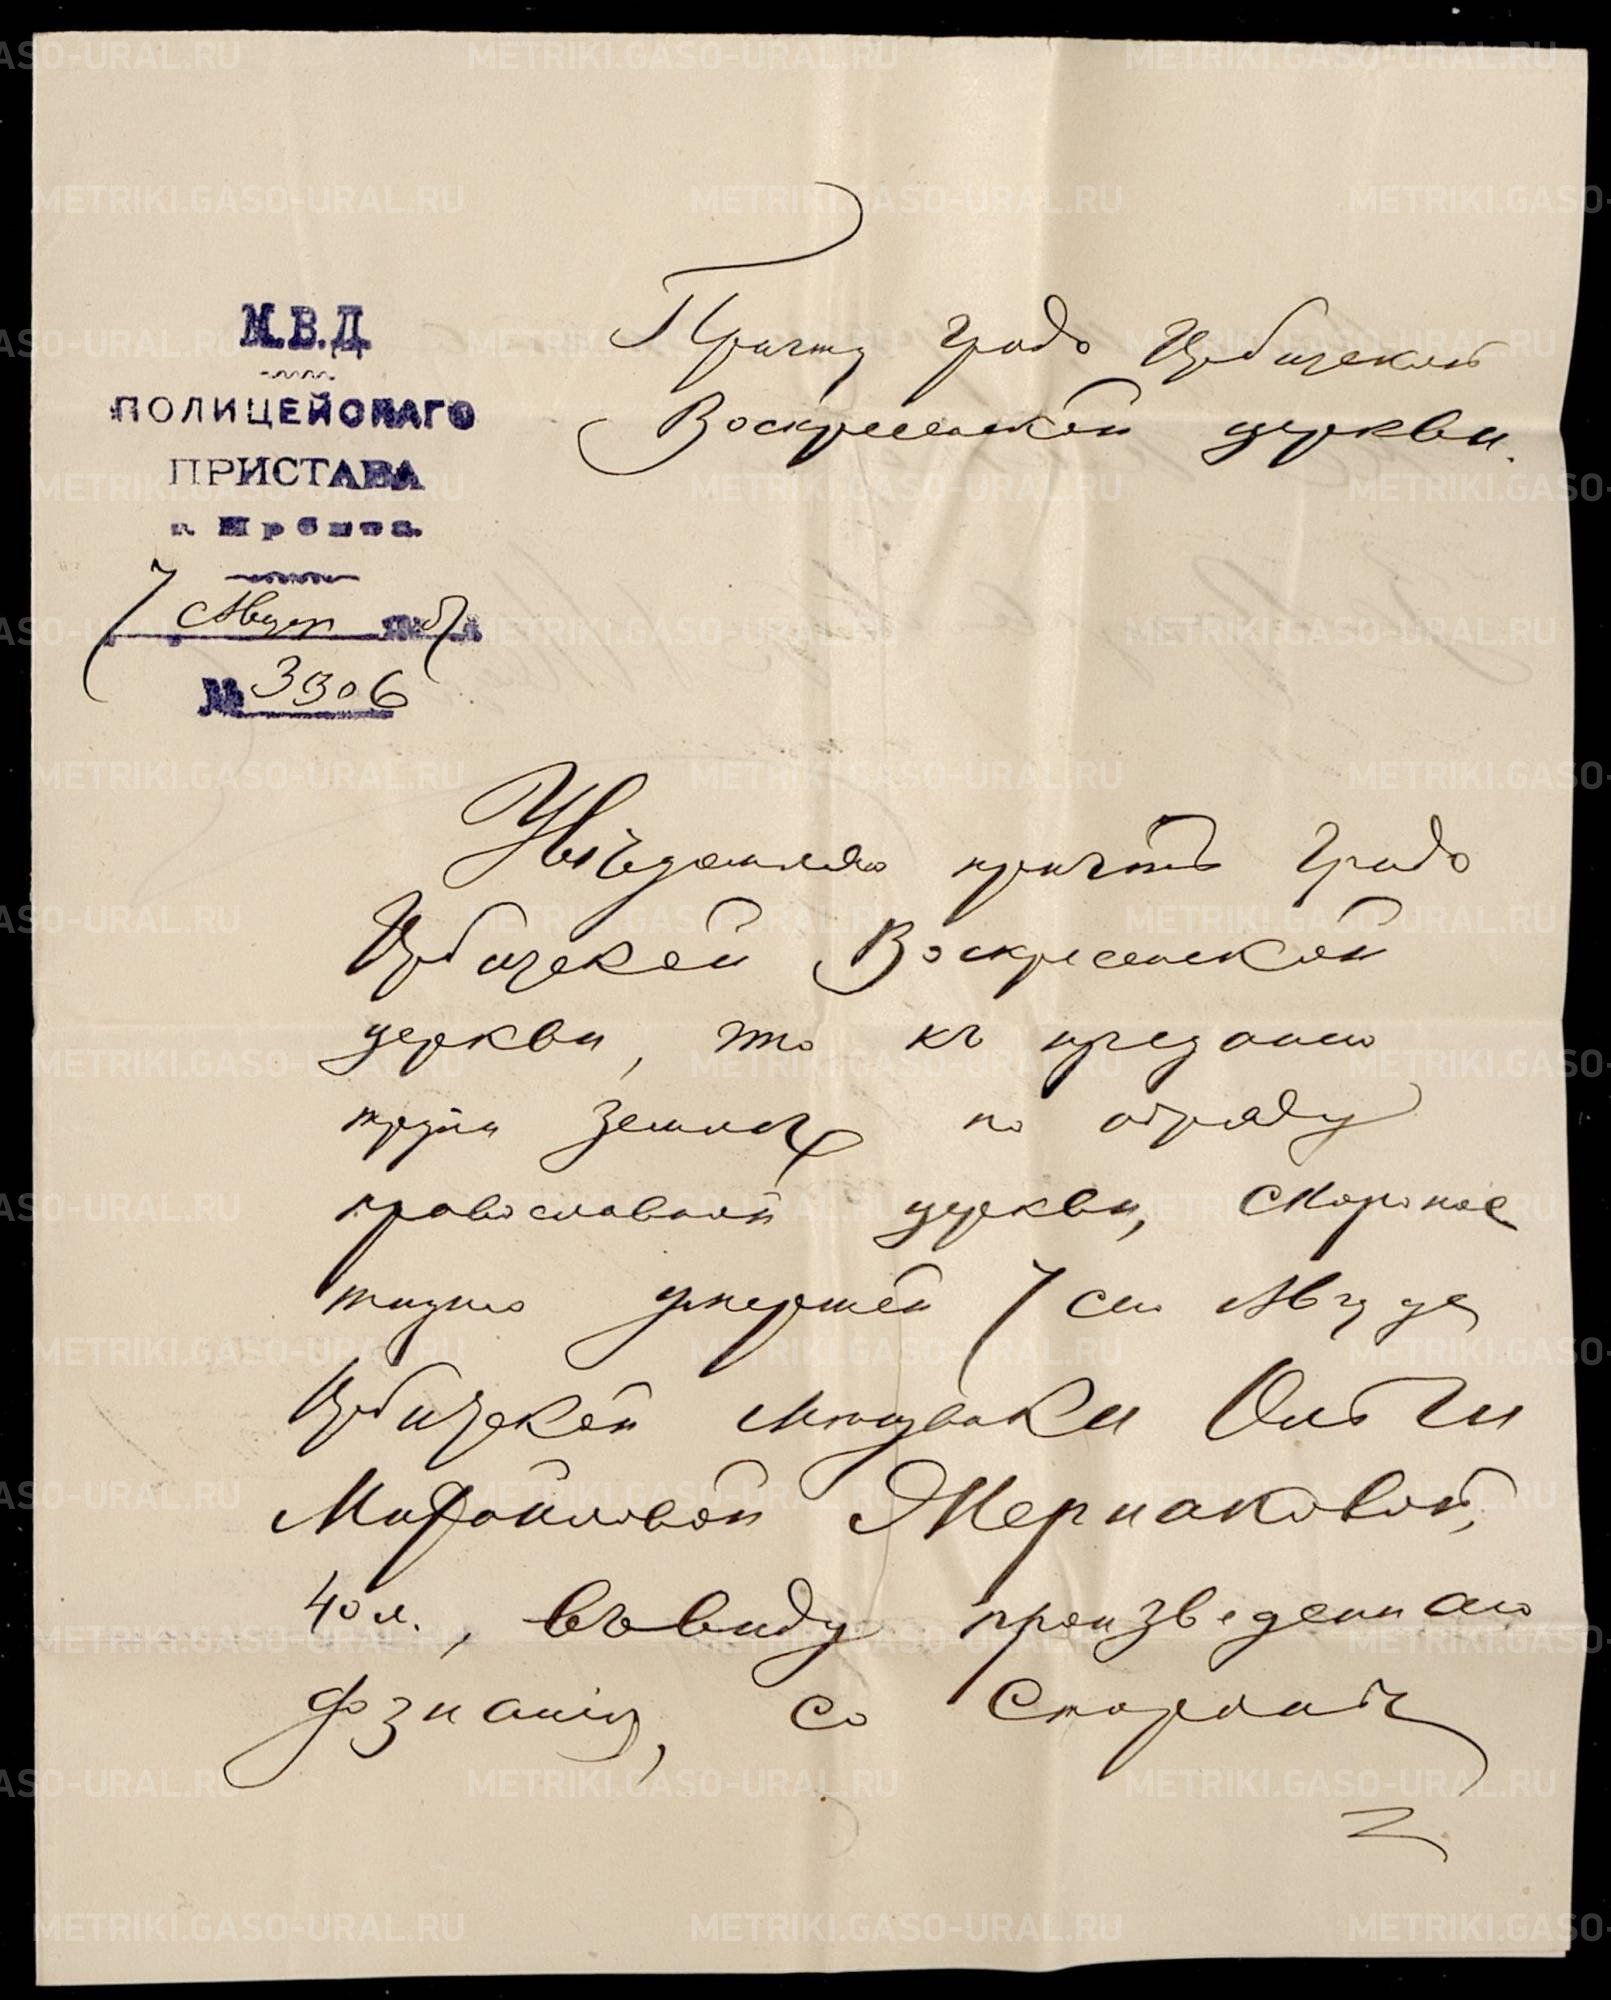 М.В.Д.
ПОЛИЦЕЙСКАГО
ПРИСТАВА
г. Ирбита.
7 Август
№ 3306
Причту Градо Ирбитской
Воскресенской церкви.
Увѣдомляю причтъ Градо
Ирбитской Воскресенской
церкви, что къ преданію
трупа землѣ по обряду
православной церкви, скоропос
тижно умершей 7 сего Августа
Ирбитской мѣщанки Ольги
Михайловой Жерноковой,
40 л., въ виду произведеннаго
дознанія, со стороны
METRIKI.GASO-URAL.RU